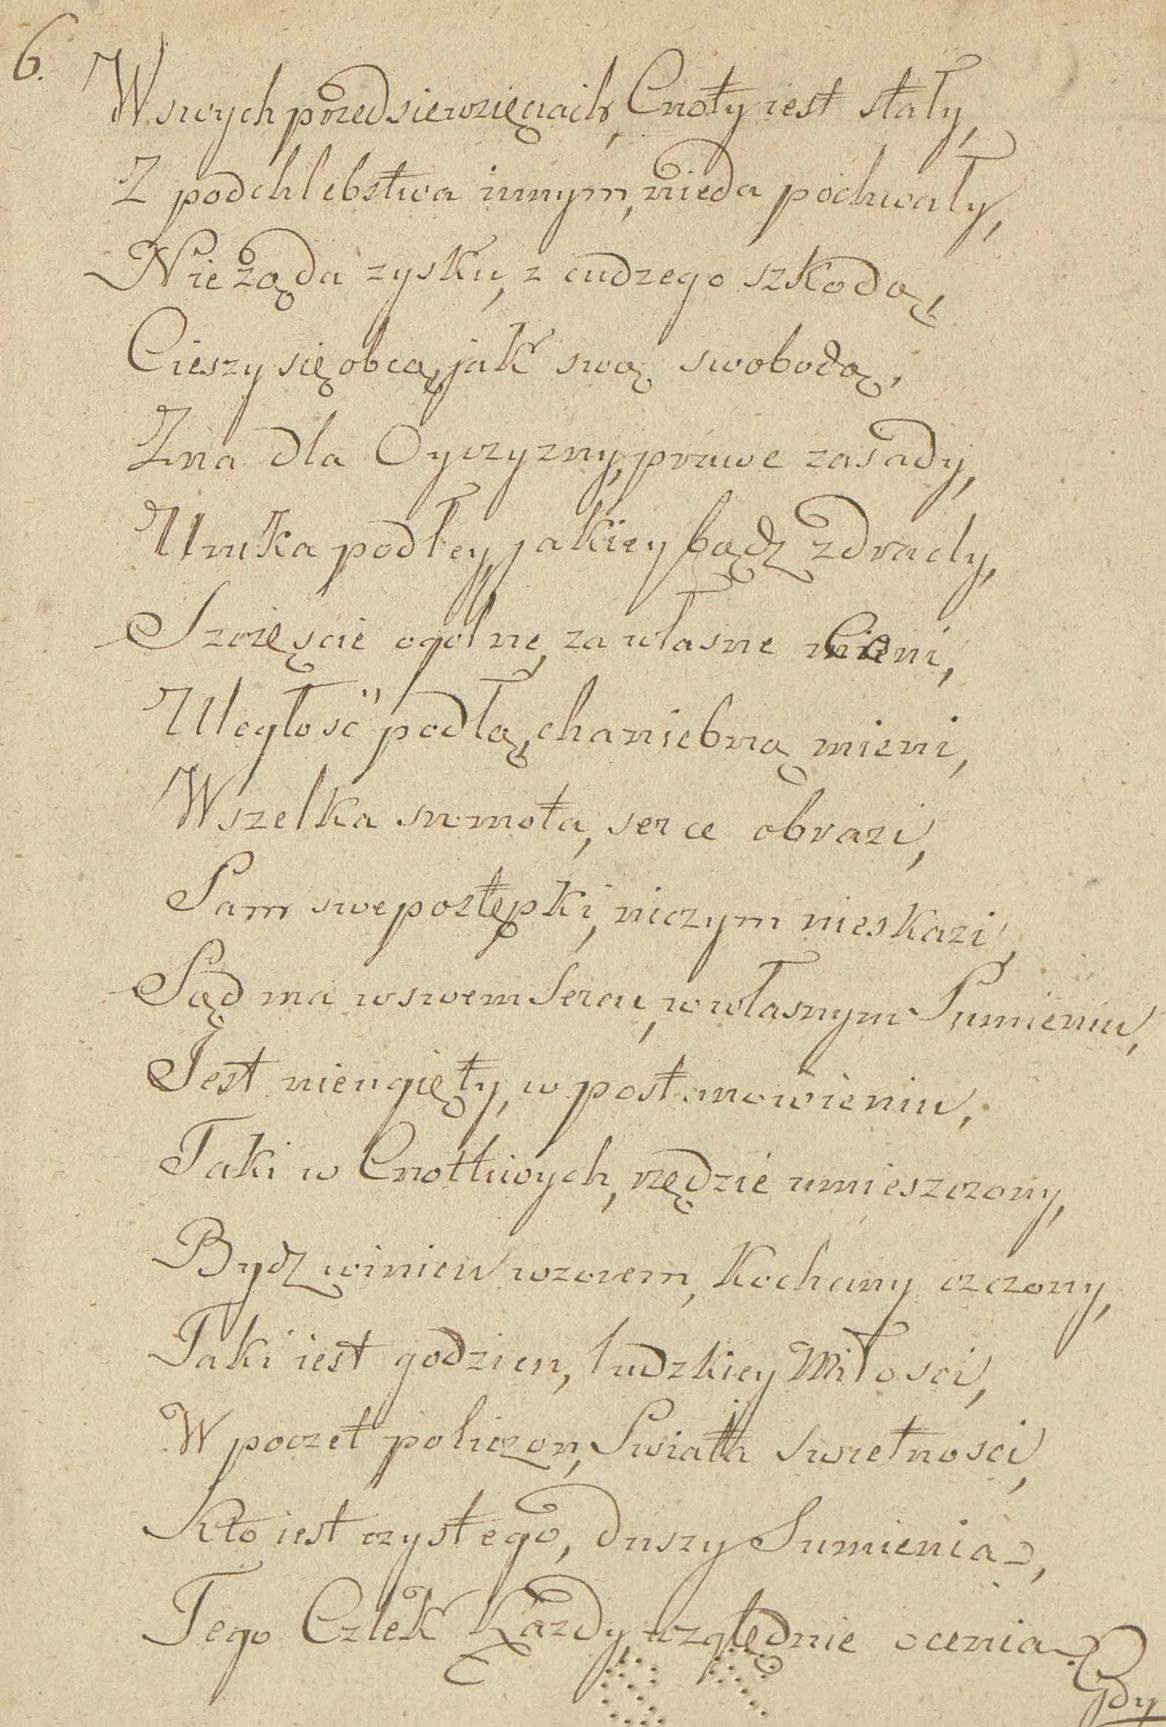 6.
W swych przedsiewzięciach, Cnoty iest stały,
Z podchlebstwa innym, nieda pochwały,
Nie ząda zysku, z cudzego szkodą,
Cieszy się obcą, jak swą swobodą,
Zna dla Oyczyzny, prawe zasady,
Unika podłey, jakiey bądz zdrady,
Szczęscie ogolne, za własne ceni,
Uległość podłą, chaniebną mieni,
Wszelka sromota, serce obrazi,
Sam swe postępki, niczym nieskazi,
Sąd ma w swem Sercu, w własnym Sumieniu,
Jest nieugięty, w postanowieniu,
Taki w Cnotliwych, rzędzie umieszczony,
Bydz winien wzorem, Kochany czczony,
Taki iest godzien, ludzkiey Miłosci,
W poczet policzon, Swiata swietnosci,
Kto iest czystego, duszy Sumienia,
Tego Człek Kazdy, względnie ocenia.
Gdy